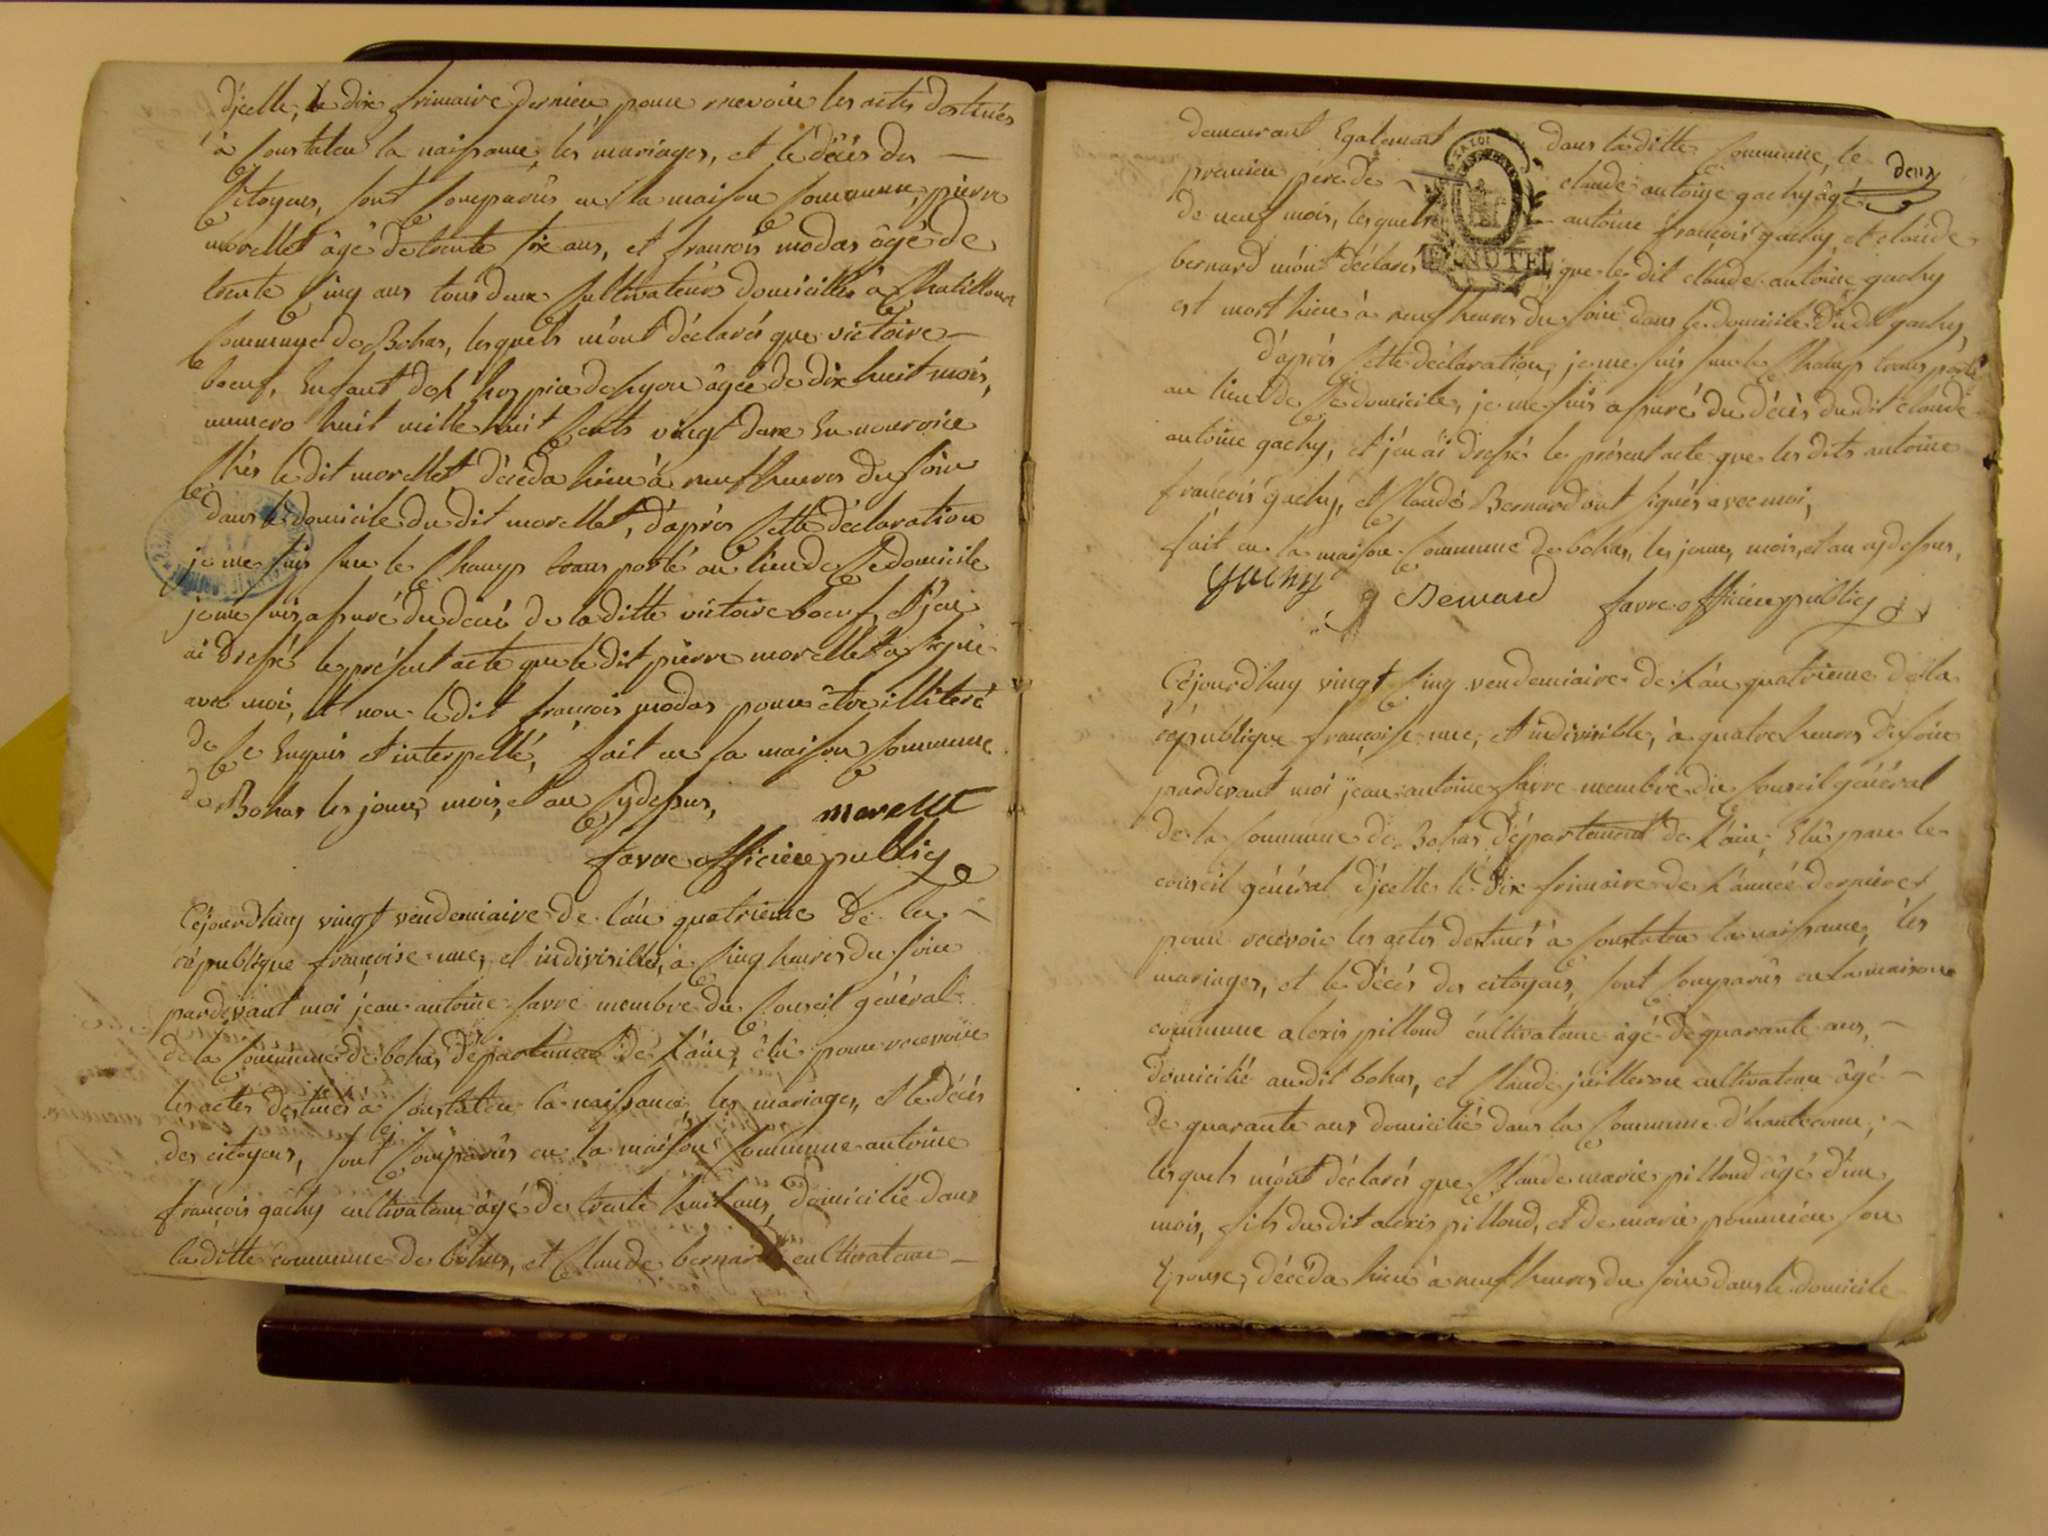 d'jcelle, le dix frimaire dernier, pour recevoir les actes destinés
à Constater la naissance, les mariages, et le décés des
Citoyens, sont Comparûs en la maison Commune, pierre
morellet âgé de trente six ans, et francois modas âgé de
trente Cinq ans tous deux Cultivateurs domiciliés à Chatillon
Commune de Bohas, lesquels m'ont déclarés que victoire
boeuf, Enfant de l'hospice de lyon âgée de dix huit mois,
numero huit mille huit Cents vingt deux En nourrice
Chés le dit morellet décéda hier à neuf heures du soir
dans le domicile du dit morellet, d'aprés Cette déclaration
je me suis sur le Champ transporté au lieu de Ce domicile
je me suis assuré du décés de la ditte victoire boeuf, et j'en
ai dressé le présent acte que le dit pierre morellet a signé
avec moi, et non le dit francois modas pour être illiteré
de Ce Enquis et interpellé, fait en la maison Commune
de Bohas les jour, mois, et an Cydessus, morellet
favre officier public
Céjourdhuy vingt vendemiaire de l'an quatrieme de la
république françoise une, et indivisible, à Cinq heures du soir
pardevant moi jean antoine favre membre du Conseil général
de la Commune de bohas département de l'ain, élu pour recevoir
les actes destinés à Constater la naissance, les mariages, et le décés
des citoyens, sont Comparûs en la maison Commune antoine
françois gachy cultivateur âgé de trente huit ans, domicilié dans
la ditte commune de bohas, et Claude bernard cultivateur
deux
demeurant Egalement dans la ditte Commune, le
premier pere de claude antoine gachy âgé
de neuf mois, lesquels antoine françois gachy, et claude
bernard m'ont déclarés que le dit claude antoine gachy
est mort hier à neuf heures du soir dans le domicile dudit gachy,
d'aprés Cette déclaration, je me suis sur le Champ transporté
au lieu de Ce domicile, je me suis assuré du décès du dit claude
antoine gachy, et j'en ai dressé le présent acte que les dits antoine
francois gachy, et Claude Bernard ont signés avec moi,
fait en la maison Commune de bohas, les jour, mois, et an cydessus,
gachy Bernard favre officier public
Céjourdhuy vingt Cinq vendemiaire de l'an quatrieme de la
république françoise une, et indivisible, à quatre heures du soir
pardevant moi jean antoine favre membre du Conseil général
de la Commune de Bohas département de l'ain, Elû par le
conseil général d'jcelle le dix frimaire de l'année derniere
pour recevoir les actes destinés à Constater la naissance, les
mariages, et le décés des citoyens, sont Comparûs en la maison
commune alexis pilloud cultivateur âgé de quarante ans,
domicilié audit bohas, et Claude juilleron cultivateur âgé
de quarante ans domicilié dans la Commune d'hautecour,
lesquels m'ont déclarés que Claude marie pilloud âgé d'un
mois, fils du dit alexis pilloud, et de marie pommier son
Epouse, décéda hier à neuf heures du soir dans le domicile